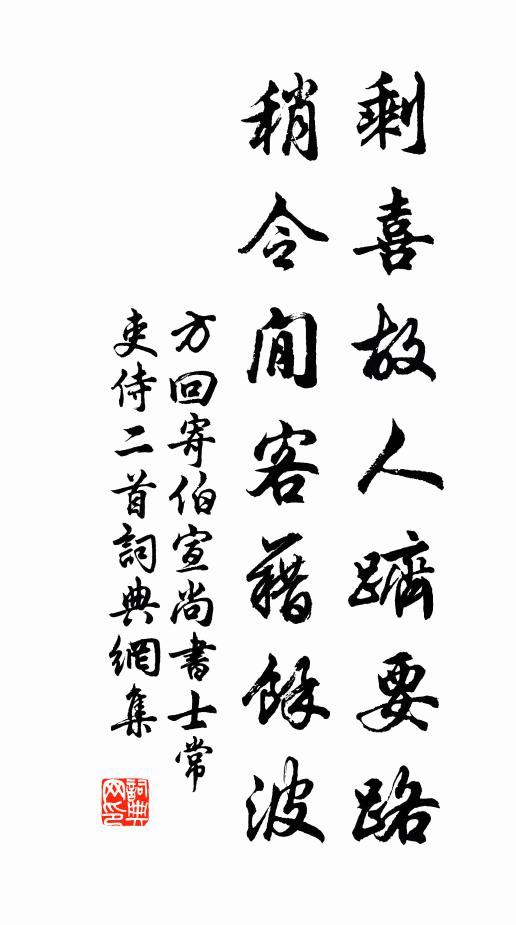 剩喜故人躋要路
稍令閒客藉餘波
方回寄伯宣尚書士常
吏侍二首詞典網集
詞典
网印